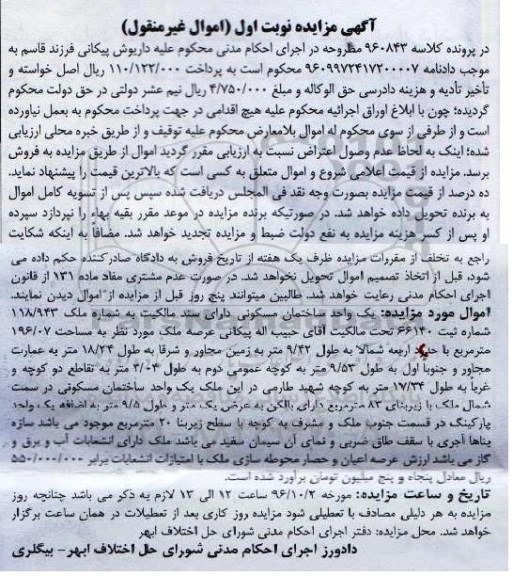 آگهی مزایده نوبت اول (اموال غیرمنقول)
در پرونده کلاسه ۹۶۰۸۴۳ مطروحه در اجرای احکام مدنی محکوم علیه داریوش پیکانی فرزند قاسم به
موجب دادنامه ۹۶۰۹۹۷۲۴۱۷۲۰۰۰۰۷ محکوم است به پرداخت ۱۱۰/۱۲۲/۰۰۰ ریال اصل خواسته و
تأخیر تأدیه و هزینه دادرسی حق الوکاله و مبلغ ۴/۷۵۰/۰۰۰ ریال نیم عشر دولتی در حق دولت محکوم
گردیده؛ چون با ابلاغ اوراق اجرائیه محکوم علیه هیچ اقدامی در جهت پرداخت محکوم به بعمل نیاورده
است و از طرفی از سوی محکوم له اموال بلامعارض محکوم علیه توقیف و از طریق خبره محلی ارزیابی
شده؛ اینک به لحاظ عدم وصول اعتراض نسبت به ارزیابی مقرر گردید اموال از طریق مزایده به فروش
برسد. مزایده از قیمت اعلامی شروع و اموال متعلق به کسی است که بالاترین قیمت را پیشنهاد نماید.
ده درصد از قیمت مزایده بصورت وجه نقد فی المجلس دریافت شده سپس پس از تسویه کامل اموال
به برنده تحویل داده خواهد شد. در صورتیکه برنده مزایده در موعد مقرر بقیه بهاء را نپردازد سپرده
او پس از کسر هزینه مزایده به نفع دولت ضبط و مزایده تجدید خواهد شد. مضافاً به اینکه شکایت
راجع به تخلف از مقررات مزایده ظرف یک هفته از تاریخ فروش به دادگاه صادرکننده حکم داده می
شود، قبل از اتخاذ تصمیم اموال تحویل نخواهد شد. در صورت عدم مشتری مفاد ماده ۱۳۱ از قانون
اجرای احکام مدنی رعایت خواهد شد. طالبین میتوانند پنج روز قبل از مزایده از اموال دیدن نمایند.
اموال مورد مزایده: یک واحد ساختمان مسکونی دارای سند مالکیت به شماره ملک ۱۱۸/۹۴۳
شماره ثبت ۶۶۱۴۰ تحت مالکیت آقای حبیب اله پیکانی عرصه ملک مورد نظر به مساحت ۱۹۶/۰۷
مترمربع با حدود اربعه شمالا به طول ۹/۴۲ متر به زمین مجاور و شرقا به طول ۱۸/۲۴ متر به عمارت
مجاور و جنوبا اول به طول ۹/۵۳ متر به کوچه عمومی دوم به طول ۳/۰۴ متر به تقاطع دو کوچه و
غربا به طول ۱۷/۳۴ متر به کوچه شهید طارمی در این ملک یک واحد ساختمان مسکونی در سمت
شمال ملک با زیربنای ۸۳ مترمربع دارای بالکن به عرض یک متر و طول ۹/۵ متر به اضافه یک واحد
پارکینگ در قسمت جنوب ملک و مشرف به کوچه با سطح زیربنا ۲۰ مترمربع موجود می باشد سازه
بناها آجری با سقف طاق ضربی و نمای آن سیمان سفید می باشد ملک دارای انشعابات آب و برق و
گاز می باشد ارزش عرصه اعیان و حصار محوطه سازی ملک با امتیازات انشعابات برابر ۵۵۰/۰۰۰/۰۰۰
ریال معادل پنجاه و پنج میلیون تومان برآورد شده است.
تاریخ و ساعت مزایده: مورخه ۹۶/۱۰/۲ ساعت ۱۲ الی ۱۳ لازم به ذکر می باشد چنانچه روز
مزایده به هر دلیلی مصادف با تعطیلی شود مزایده روز کاری بعد از تعطیلات در همان ساعت برگزار
خواهد شد. محل مزایده: دفتر اجرای احکام مدنی شورای حل اختلاف ابهر
دادورز اجرای احکام مدنی شورای حل اختلاف ابهر- بیگلری